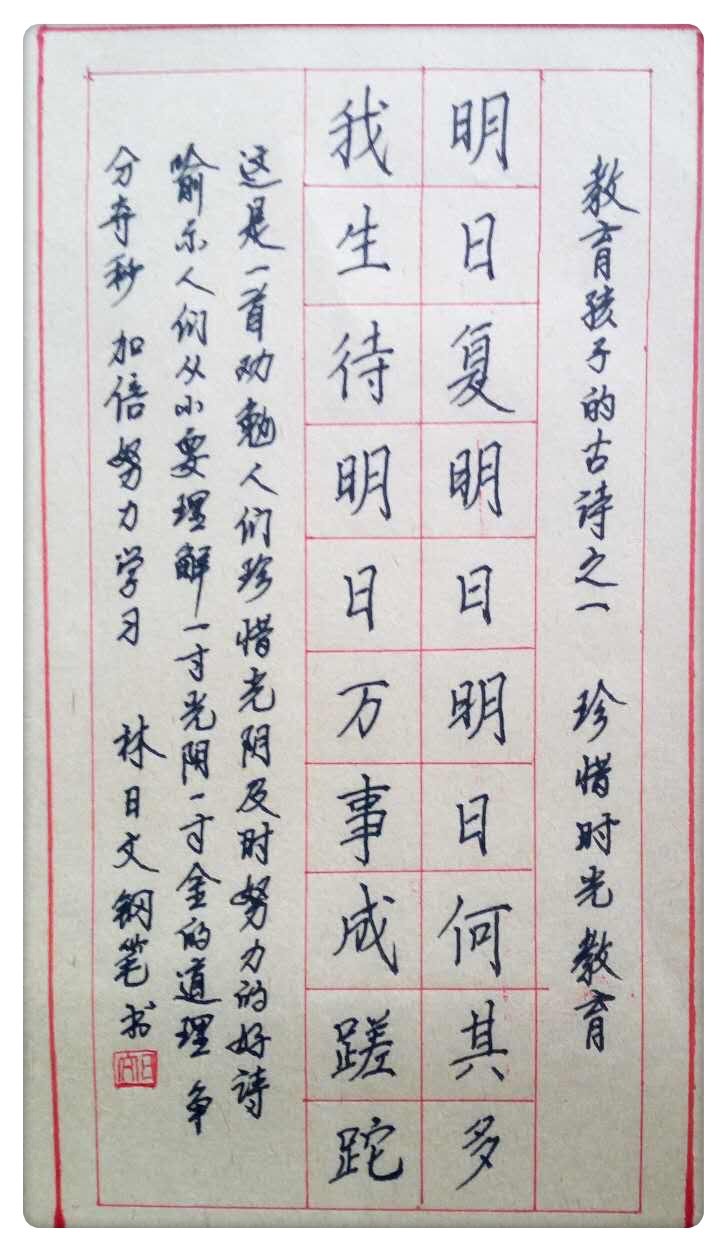 教育孩子的古诗之一 珍惜时光教育
明日复明日明日何其多
我生待明日万事成蹉跎
这是一首劝勉人们珍惜光阴及时努力的好诗
喻示人们从小要理解一寸光阴一寸金的道理 争
分夺秒 加倍努力学习 林日文钢笔书